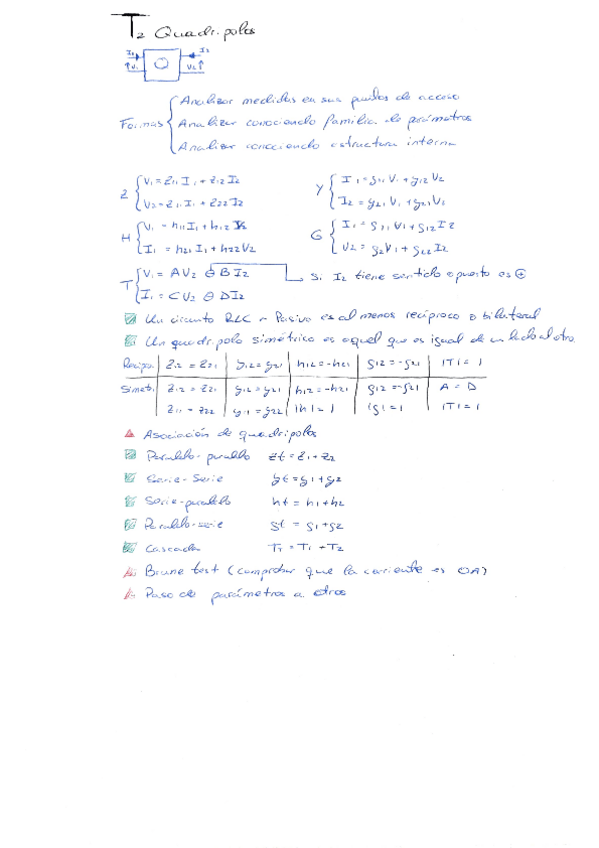 T2 Quadripolos
I1 I2
V1 V2
Formas { Analizar medidas en sus puntos de acceso
Analizar conociendo familia de parámetros
Analizar conociendo estructura interna
Z { V1 = Z11 I1 + Z12 I2
V2 = Z11 I1 + Z22 I2
Y { I1 = y11 V1 + y12 V2
I2 = y21 V1 + y21 V2
H { V1 = h11 I1 + h12 V2
I1 = h21 I1 + h22 V2
G { I1 = g11 V1 + g12 I2
V2 = g2 V1 + g22 I2
T { V1 = A V2 ⊖ B I2 → Si I2 tiene sentido opuesto es ⊕
I1 = C V2 ⊖ D I2
Un circuito RLC - Pasivo es al menos recíproco o bilateral
Un quadripolo simétrico es aquel que es igual de un lado al otro
Recipro. | Z12 = Z21 | y12 = y21 | h12 = -h21 | g12 = -g21 | |T| = 1
Simetri | Z12 = Z21 | y12 = y21 | h12 = -h21 | g12 = -g21 | A = D
Z11 = Z22 | y11 = y22 | |h| = 1 | |g| = 1 | |T| = 1
Asociación de quadripolos
Paralelo-paralelo Zt = Z1 + Z2
Serie-Serie yt = y1 + y2
Serie-paralelo ht = h1 + h2
Paralelo-serie gt = g1 + g2
Cascada TT = T1 + T2
Brune test (comprobar que la coriente es 0A)
Paso de parámetros a otros